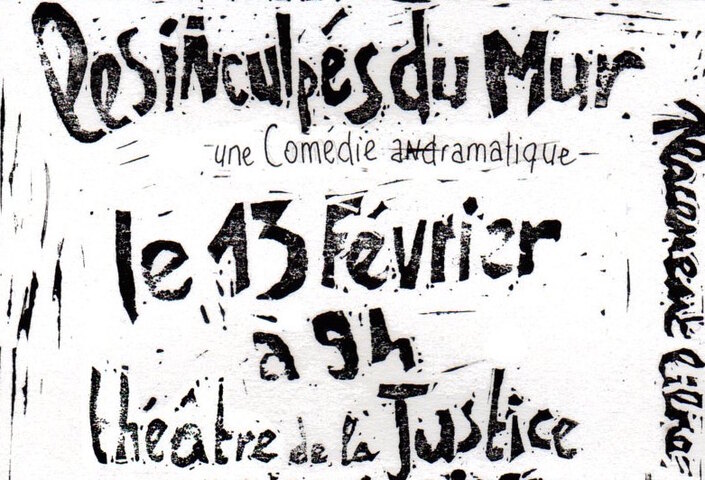 Les inculpés du Mur
une Comédie andramatique
le 13 Février
à 9h
théâtre de la Justice